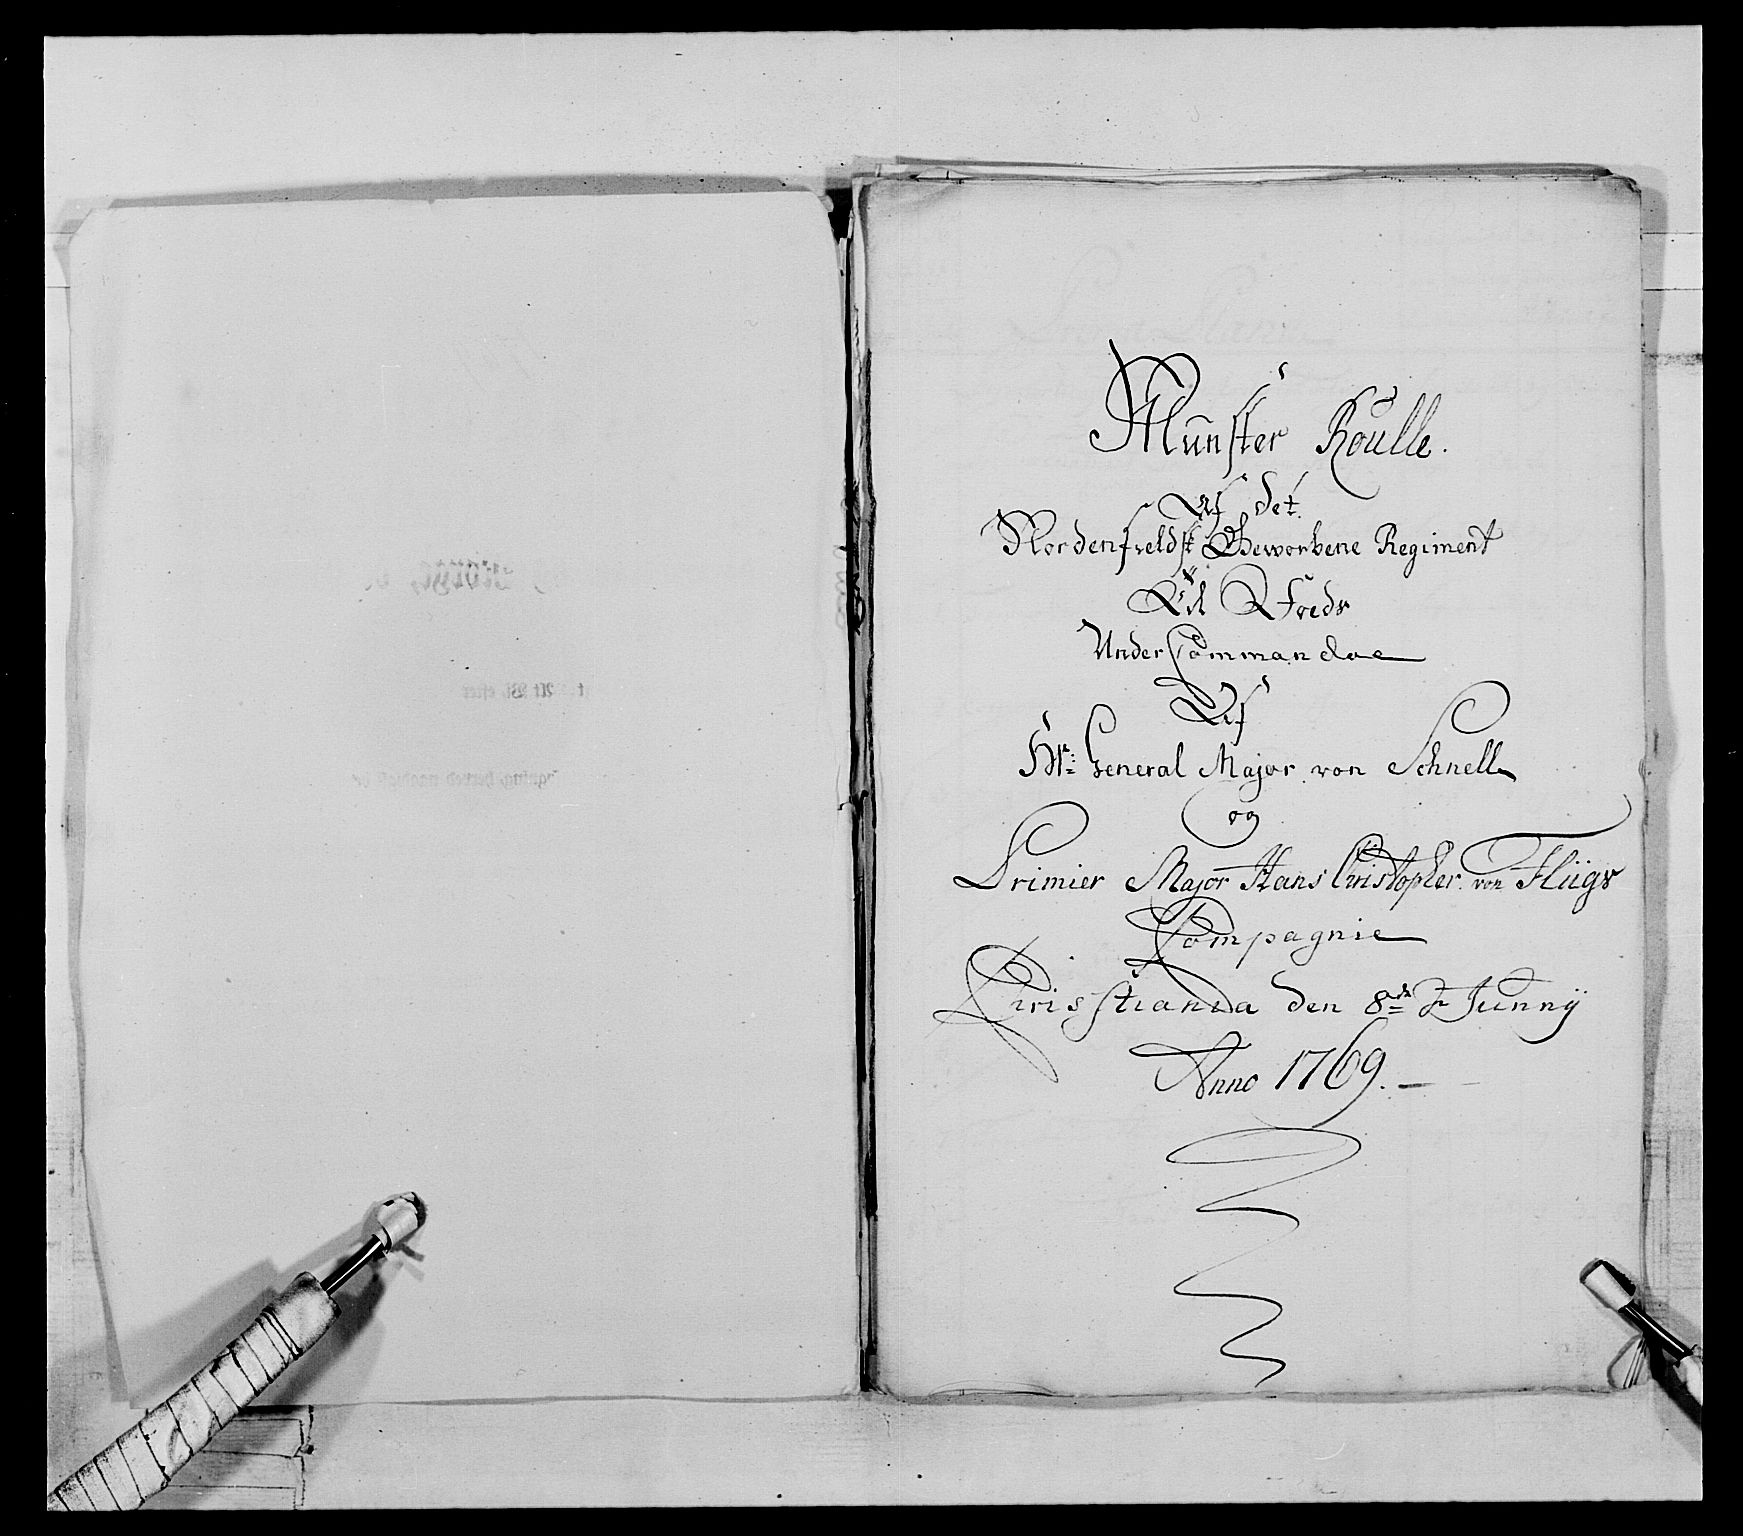 Munster Roulle.
Af det
Nordenfieldsk Geworbene Regiment
Til Foeds
Under Commandoe
Af
Hr: General Major von Schnell
og
Primier Major Hans Christopher von Flügs
Compagnie
Chrisstiania den 8de Junny
Anno 1769.